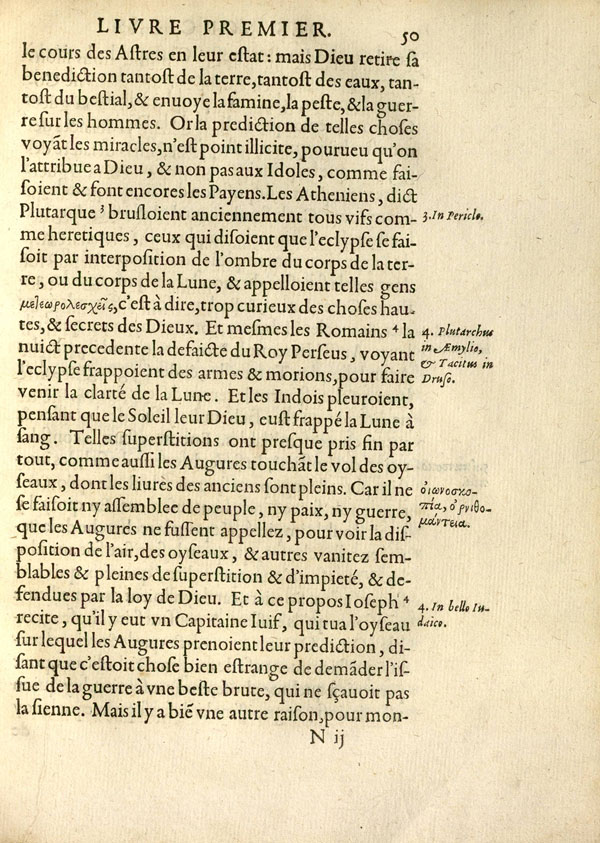 LIVRE PREMIER. 50
le cours des Astres en leur estat : mais Dieu retire sa
benediction tantost de la terre, tantost des eaux, tan-
tost du bestial, & enuoye la famine, la peste, & la guer-
re sur les hommes. Or la prediction de telles choses
voyāt les miracles, n'est point illicite, pourueu qu'on
l'attribue a Dieu, & non pas aux Idoles, comme fai-
soient & font encores les Payens. Les Atheniens, dict
Plutarque ³ brusloient anciennement tous vifs com-
3. In Pericle.
me heretiques, ceux qui disoient que l'eclypse se fai-
soit par interposition de l'ombre du corps de la ter-
re, ou du corps de la Lune, & appelloient telles gens
μετεωρολεσχεῖς, c'est à dire, trop curieux des choses hau-
tes, & secrets des Dieux. Et mesmes les Romains ⁴ la
4. Plutarchus
nuict precedente la defaicte du Roy Perseus, voyant
in Æmylio,
l'eclypse frappoient des armes & morions, pour faire
& Tacitus in
venir la clarté de la Lune. Et les Indois pleuroient,
Druso.
pensant que le Soleil leur Dieu, eust frappé la Lune à
sang. Telles superstitions ont presque pris fin par
tout, comme aussi les Augures touchāt le vol des oy-
seaux, dont les liures des anciens sont pleins. Car il ne
οἰωνοσκο-
se faisoit ny assemblee de peuple, ny paix, ny guerre,
πία, ὀρνιθο-
que les Augures ne fussent appellez, pour voir la dis-
μάντεια.
position de l'air, des oyseaux, & autres vanitez sem-
blables & pleines de superstition & d'impieté, & de-
fendues par la loy de Dieu. Et à ce propos Ioseph ⁴
4. In bello Iu-
recite, qu'il y eut vn Capitaine Iuif, qui tua l'oyseau
daico.
sur lequel les Augures prenoient leur prediction, di-
sant que c'estoit chose bien estrange de demāder l'is-
sue de la guerre à vne beste brute, qui ne sçauoit pas
la sienne. Mais il y a biē vne autre raison, pour mon-
N ij